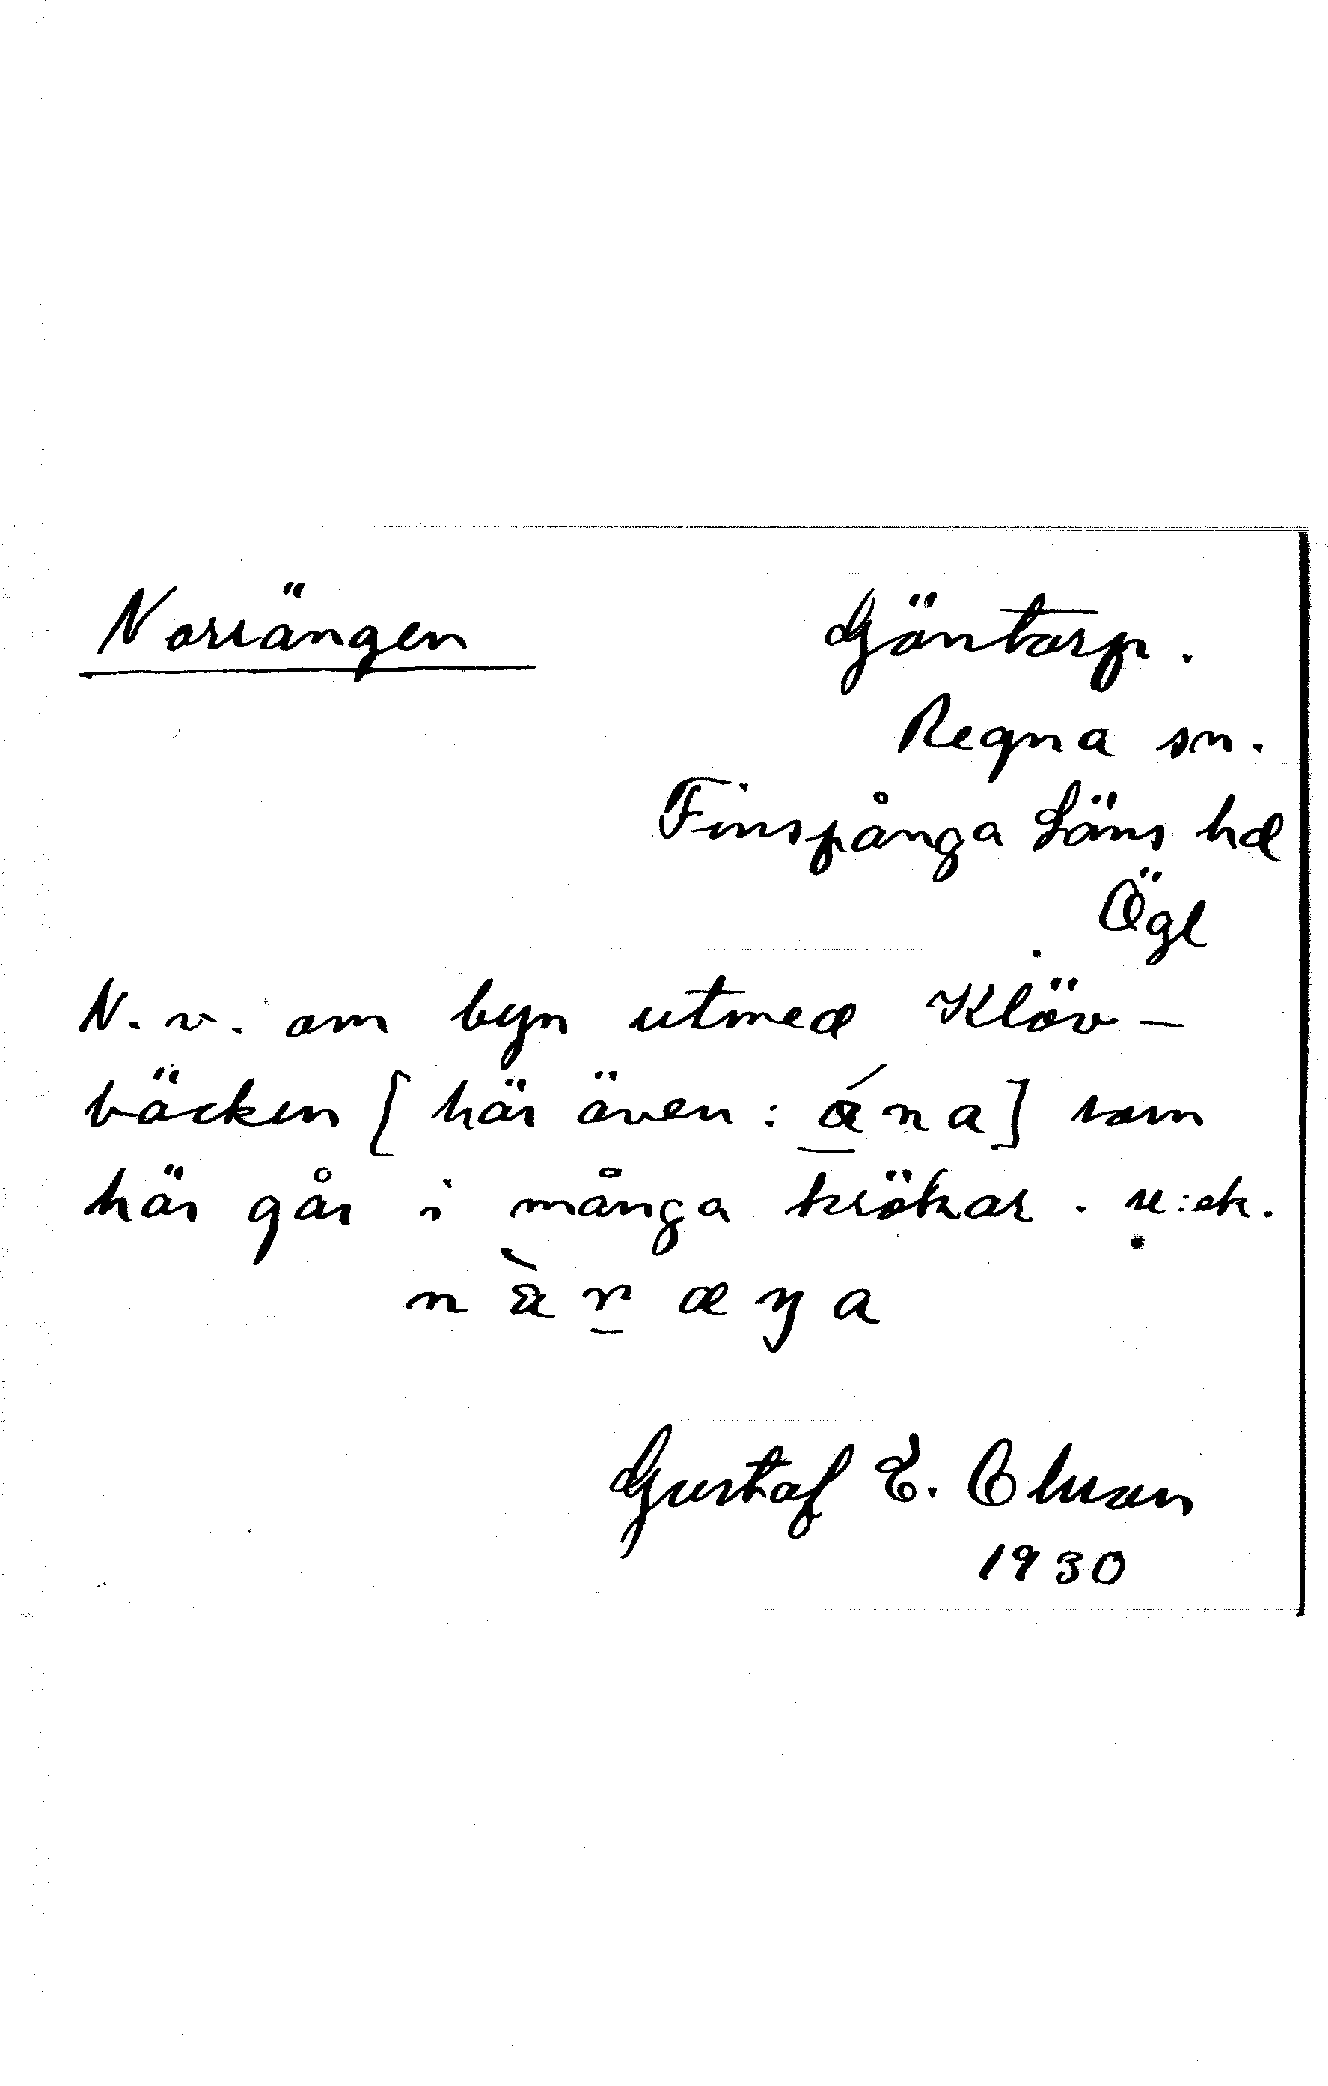 Norrängen
Göntorp.
Regna sn.
Finspånga Läns hd
Ögl
N. v. om byn utmed Klöv-
bäcken [här även: ána] som
här går i många krökar.
næ̀ræŋa
Gustaf E. Olsson
1930